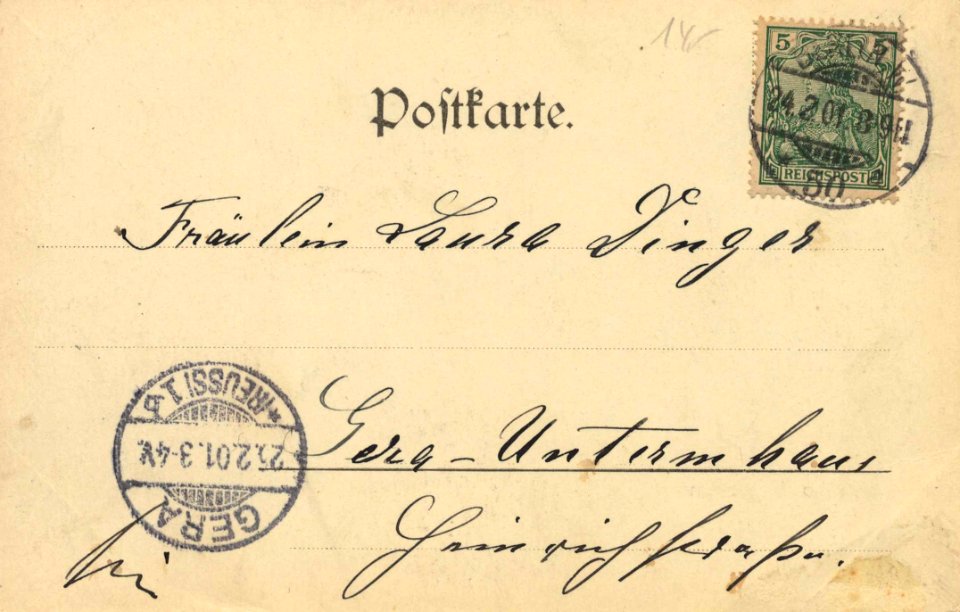 14
5
BERLIN W
24.2.01.8-9N
50
REICHSPOST
Postkarte.
Fräulein Laura Dinger
(REUSS) 1.b
25.2.01.3-4V.
GERA
Gera-Untermhaus
Heinrichstraße.